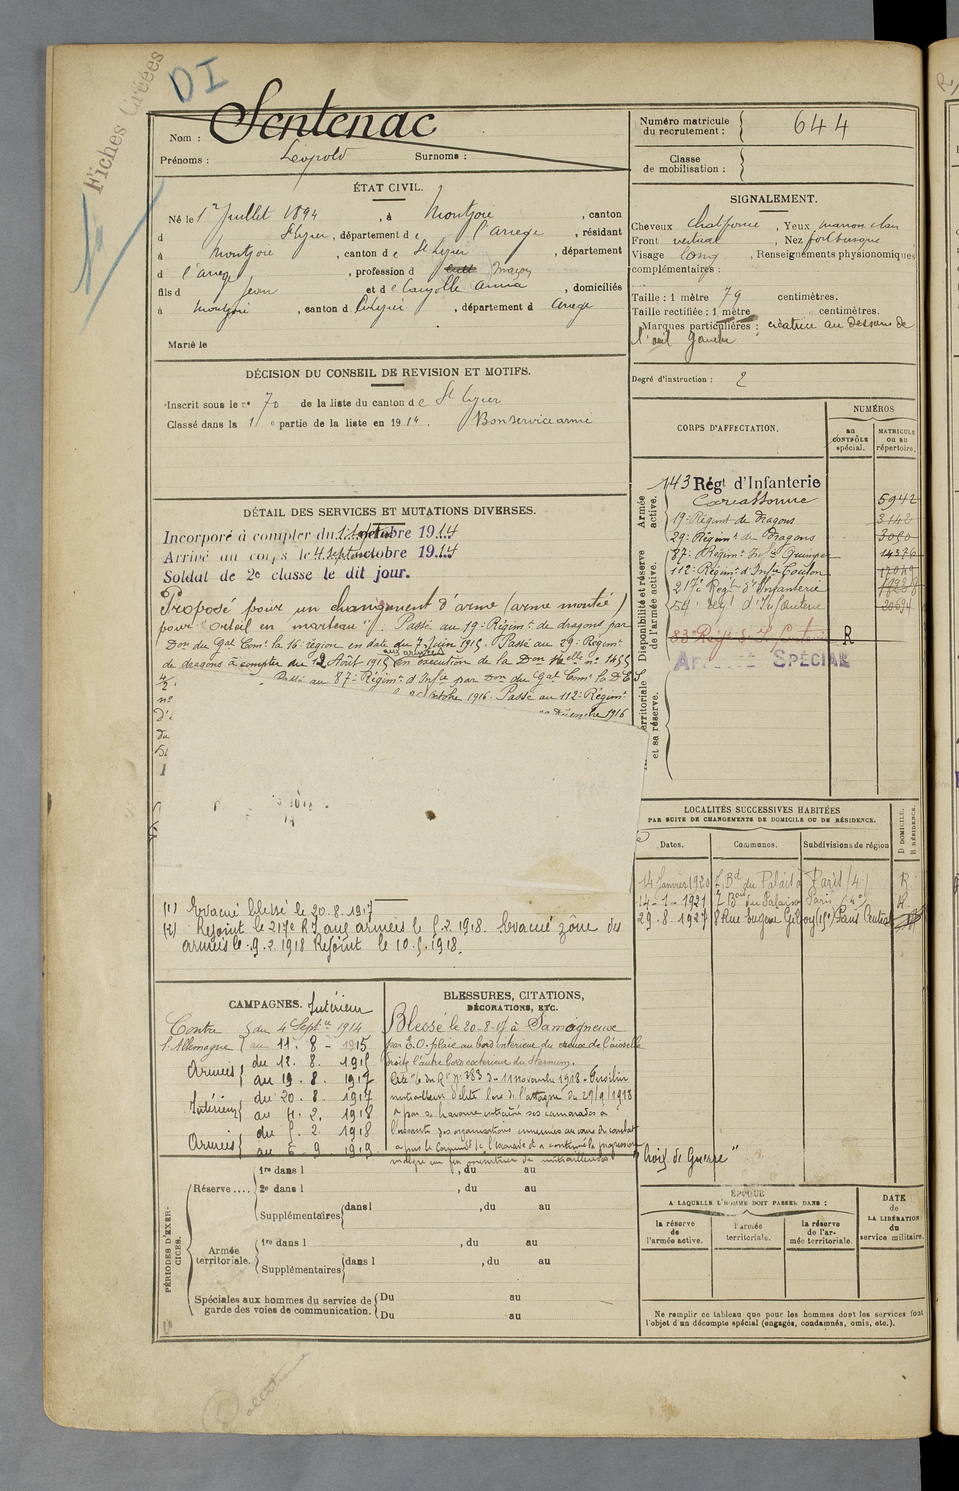 Fiches Créées
DI
Nom : Sentenac
Prénoms : Léopold Surnoms :
Numéro matricule du recrutement : 644
Classe de mobilisation :
ÉTAT CIVIL.
Né le 1er Juillet 1894, à Montjoie, canton
d St Lizier, département de l'Ariège, résidant
à Montjoie, canton de St Lizier, département
d l'Ariege, profession d Maçon
fils d Jean et de Cazalle Anna, domiciliés
à Montjoie, canton d St Lizier, département d Ariege
Marié le
SIGNALEMENT.
Cheveux Chat foncé, Yeux marron clair
Front vertical, Nez fort busqué
Visage long, Renseignements physionomiques
complémentaires :
Taille : 1 mètre 79 centimètres.
Taille rectifiée : 1 mètre centimètres.
Marques particulières : cicatrice au dessous de
l'œil gauche
Degré d'instruction : 2
DÉCISION DU CONSEIL DE REVISION ET MOTIFS.
Inscrit sous le n° 70 de la liste du canton de St Lizier
Classé dans la 1e partie de la liste en 1914. Bon service armé
CORPS D'AFFECTATION.
NUMÉROS
au CONTRÔLE spécial.
MATRICULE ou au répertoire.
Armée active.
Disponibilité et réserve de l'armée active.
territoriale et sa réserve.
143 Régt d'Infanterie
Carcassonne 5942
19e Régiment de Dragons 3142
29e Régimt de Dragons 3050
87e Régimt Infie Quimper 14376
112e Régimt d'Infie Toulon
217e Régt d'Infanterie
54e regt d'Infanterie 20694
83e Regt d'I. R
AFFECTÉ SPÉCIAL
DÉTAIL DES SERVICES ET MUTATIONS DIVERSES.
Incorporé à compter du 1914
Arrivé au corps le 4 septembre 1914
Soldat de 2e classe le dit jour.
Proposé pour un changement d'arme (arme montée)
pour "orteil en marteau". Passé au 19e Régimt de dragons par
Don du Gal Comt la 16e région en date du 7 Juin 1915. Passé au 29e Régimt
de dragons à compter du 12 Août 1915 aux armées en exécution de la Don
Passé au 87e Régimt d'Infie par Don du Gal Comt la D.E.S
octobre 1916. Passé au 112e Régimt
décembre 1916
(1) Evacué blessé le 20.8.1917
(2) Rejoint le 217e RI aux armées le 5.2.1918. Evacué zône des
armées le 9.2.1918 Rejoint le 10.5.1918.
LOCALITÉS SUCCESSIVES HABITÉES
PAR SUITE DE CHANGEMENTS DE DOMICILE OU DE RÉSIDENCE.
Dates. Communes. Subdivisions de région D DOMICILE. R RÉSIDENCE.
14 Janvier 1920 7 Bd du Palais à Paris (4e) R
14-1-1921 7 Boul du Palais Paris (4e) R
29-8-1927 8 Rue Eugène Gibez (15e) Paris Central
CAMPAGNES.
Intérieur
Contre l'Allemagne
du 4 Septre 1914
au 11. 8 - 1915
Armées du 12. 8. 1915
au 19. 8. 1917
Intérieur du 20. 8. 1917
au 4. 2. 1918
Armées du 5. 2. 1918
au 5 - 9 1919
BLESSURES, CITATIONS,
DÉCORATIONS, ETC.
Blessé le 20-8-17 à Samogneux
par E.O. plaie au bord intérieur du creux de l'aisselle
droite l'autre bord extérieur du sternum.
Cité Ordre du Rt n° 283 du 11 novembre 1918 - Fusilier
mitrailleur d'élite lors de l'attaque du 29/9/1918
a par sa bravoure entraîné ses camarades à
l'assaut des organisations ennemies au cours du combat
a pris le Commandt de l'escouade et a continué la progression
malgré un feu meurtrier de mitrailleuses
"Croix de Guerre"
PÉRIODES D'EXERCICES.
Réserve....
1re dans l , du au
2e dans l , du au
Supplémentaires dans l , du au
Armée territoriale.
1re dans l , du au
Supplémentaires dans l , du au
Spéciales aux hommes du service de garde des voies de communication.
Du au
Du au
ÉPOQUE
A LAQUELLE L'HOMME DOIT PASSER DANS :
la réserve de l'armée active.
l'armée territoriale.
la réserve de l'armée territoriale.
DATE de LA LIBÉRATION du service militaire.
Ne remplir ce tableau que pour les hommes dont les services font
l'objet d'un décompte spécial (engagés, condamnés, omis, etc.).